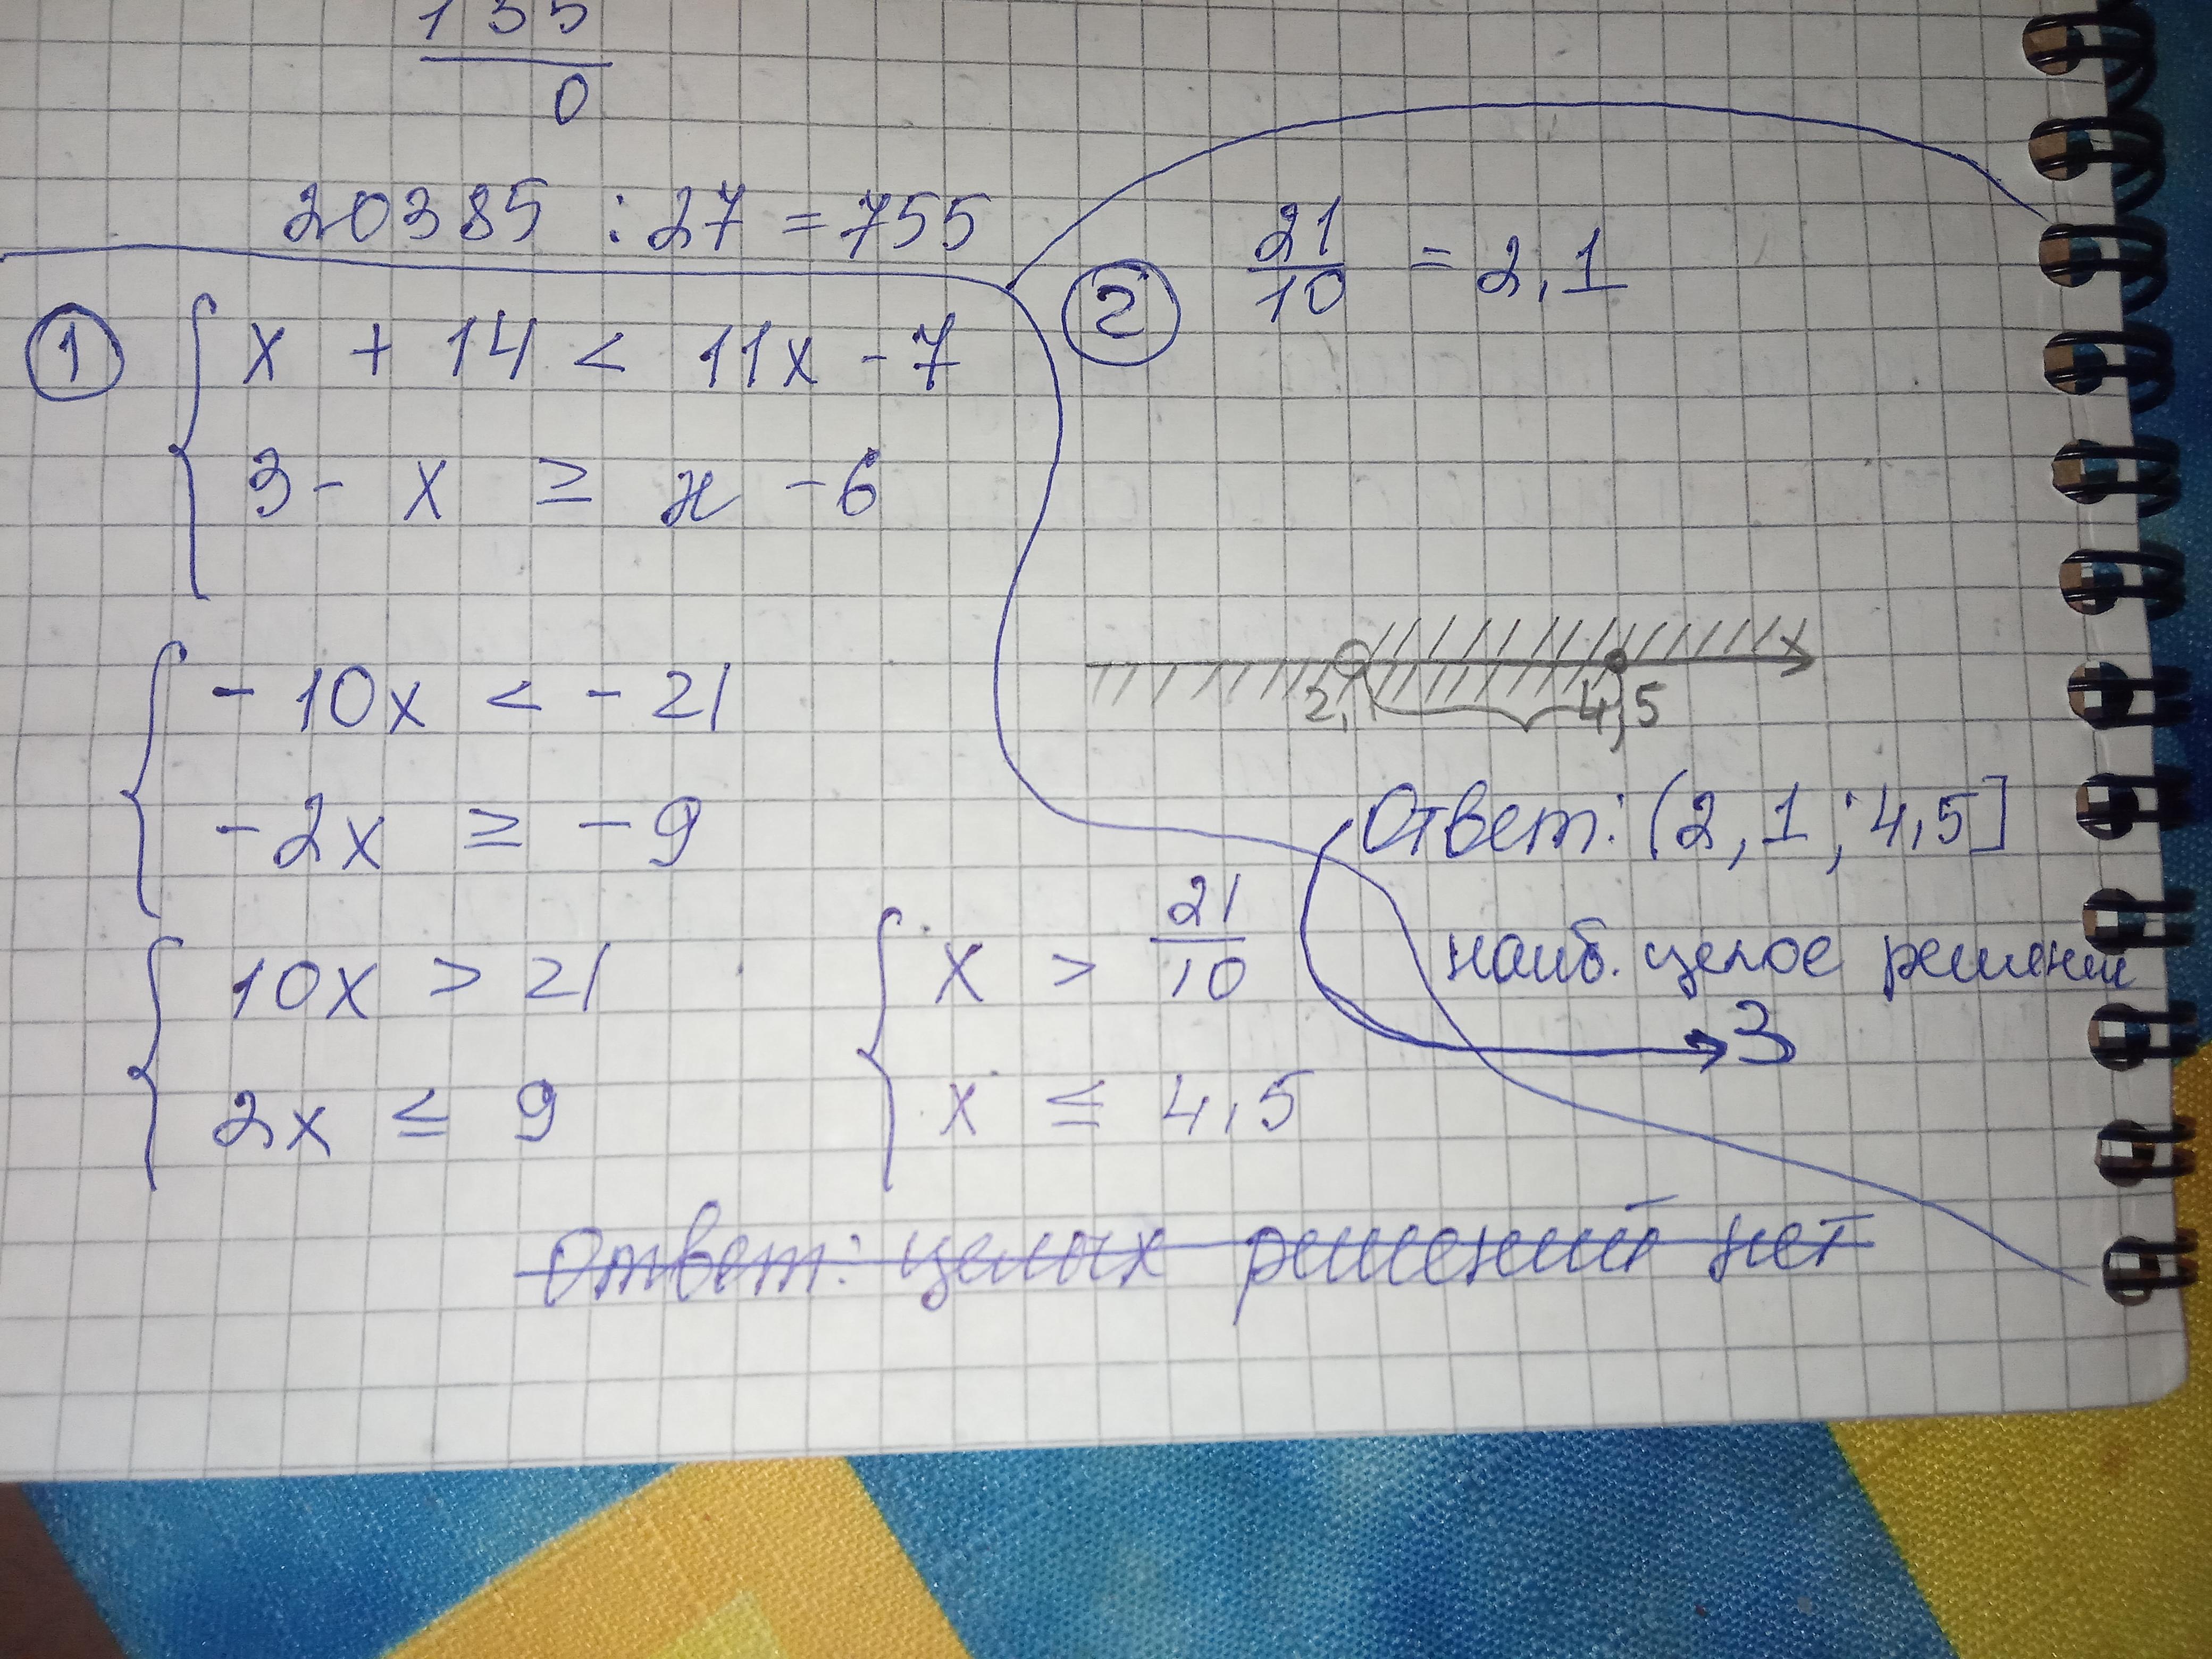 135
0
20385 : 27 = 755
1
x + 14 < 11x - 7
3 - x ≥ x - 6
- 10x < - 21
- 2x ≥ - 9
10x > 21
2x ≤ 9
x > 21/10
x ≤ 4,5
2
21/10 = 2,1
x
2,1 4,5
Ответ: (2,1; 4,5]
наиб. целое решени
3
Ответ: целых решений нет